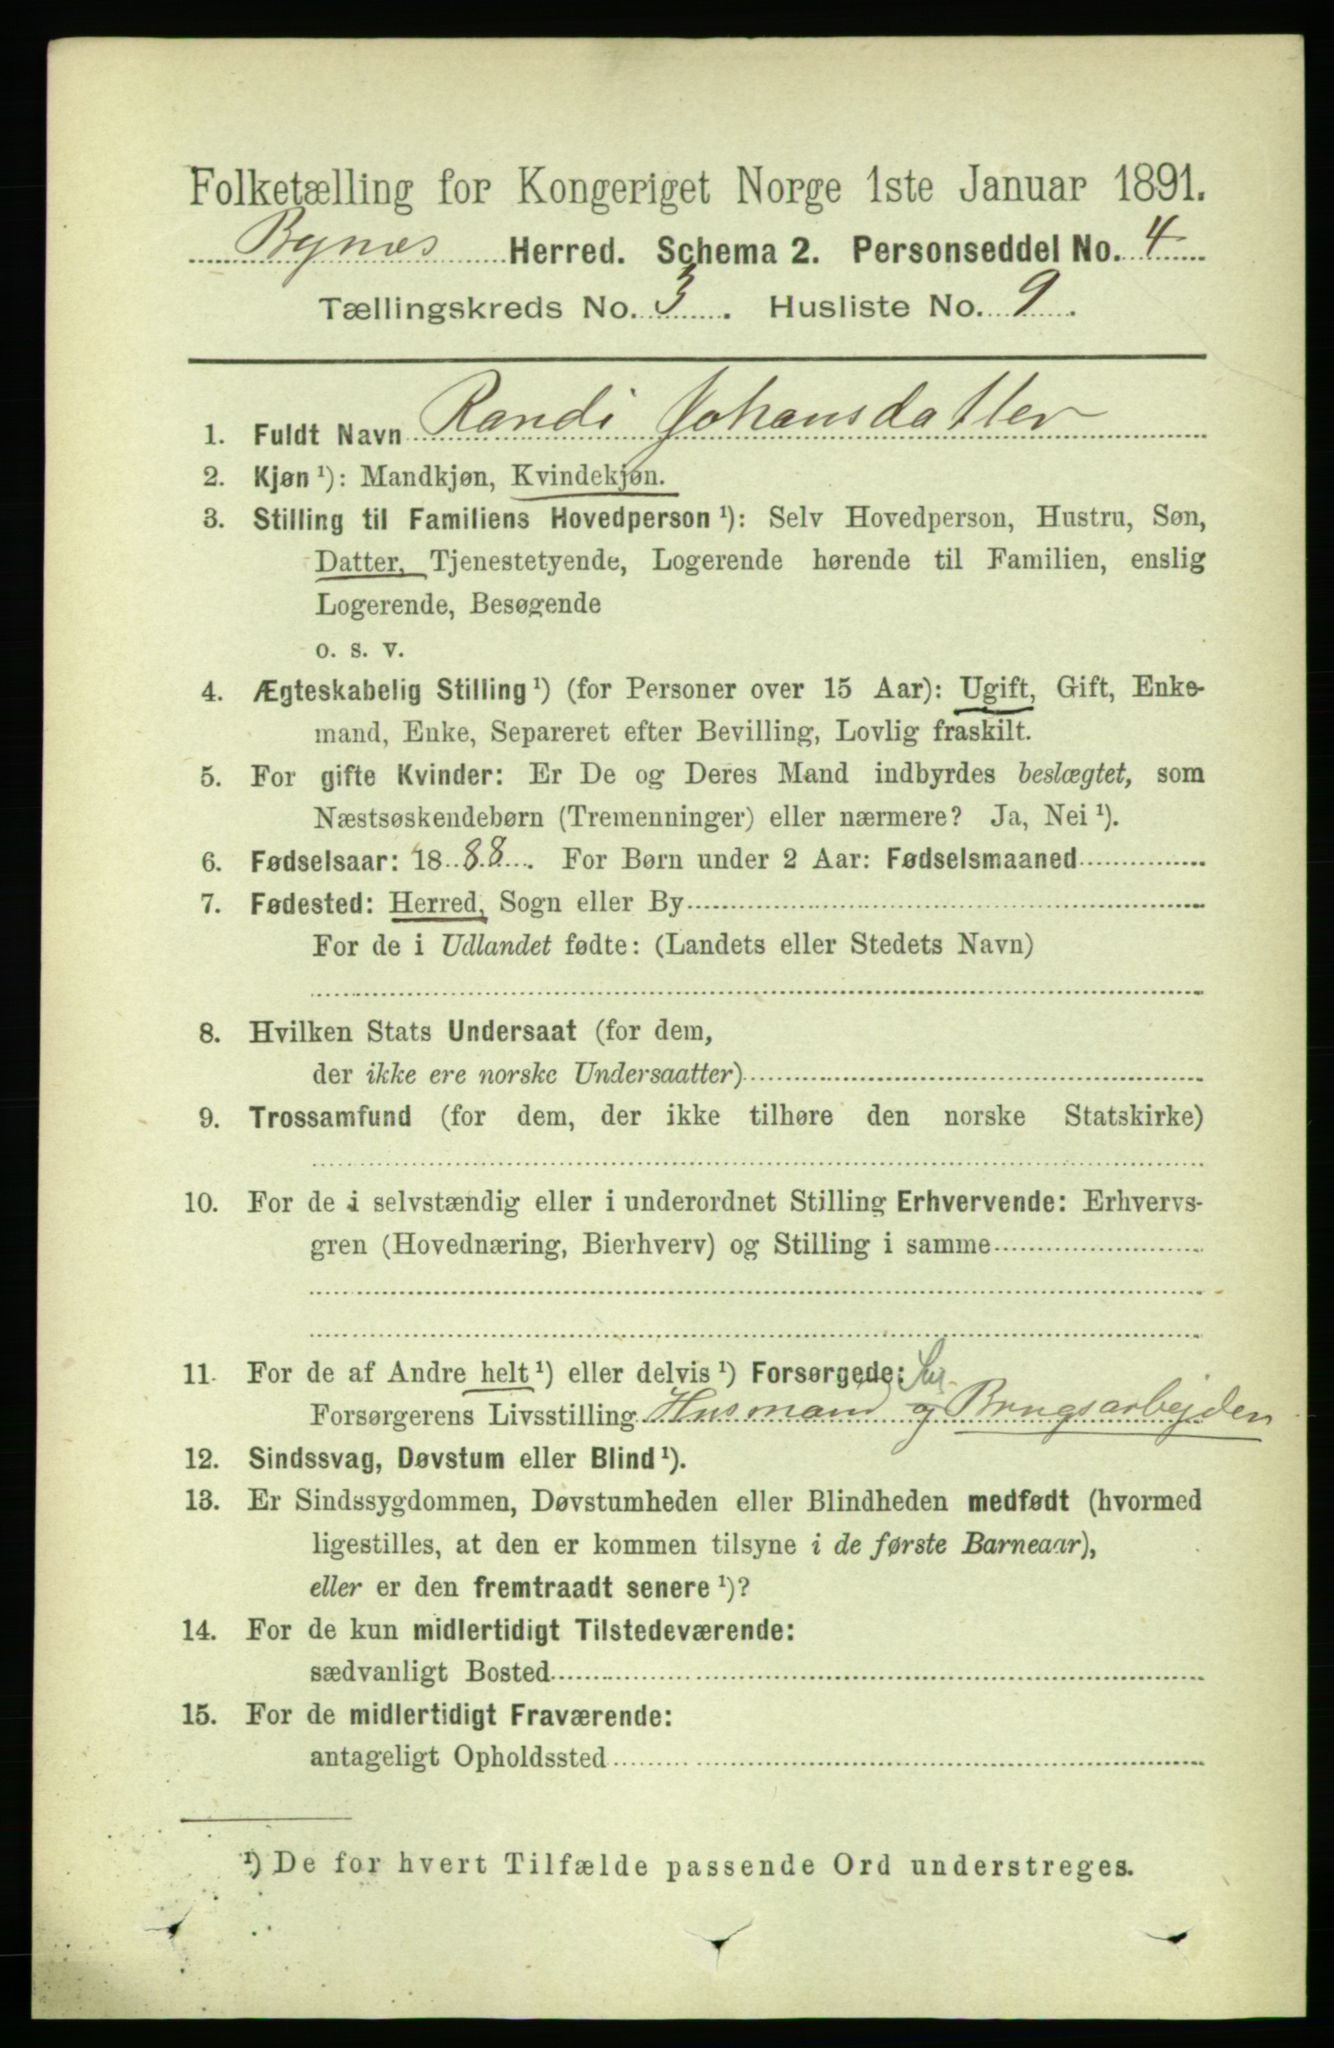 Folketælling for Kongeriget Norge 1ste Januar 1891.
Bynes Herred. Schema 2. Personseddel No. 4
Tællingskreds No. 3. Husliste No. 9.
1. Fuldt Navn Randi Johansdatter
2. Kjøn ¹): Mandkjøn, Kvindekjøn.
3. Stilling til Familiens Hovedperson ¹): Selv Hovedperson, Hustru, Søn,
Datter, Tjenestetyende, Logerende hørende til Familien, enslig
Logerende, Besøgende
o. s. v.
4. Ægteskabelig Stilling ¹) (for Personer over 15 Aar): Ugift, Gift, Enke-
mand, Enke, Separeret efter Bevilling, Lovlig fraskilt.
5. For gifte Kvinder: Er De og Deres Mand indbyrdes beslægtet, som
Næstsøskendebørn (Tremenninger) eller nærmere? Ja, Nei ¹).
6. Fødselsaar: 1888. For Børn under 2 Aar: Fødselsmaaned
7. Fødested: Herred, Sogn eller By
For de i Udlandet fødte: (Landets eller Stedets Navn)
8. Hvilken Stats Undersaat (for dem,
der ikke ere norske Undersaatter)
9. Trossamfund (for dem, der ikke tilhøre den norske Statskirke)
10. For de i selvstændig eller i underordnet Stilling Erhvervende: Erhvervs-
gren (Hovednæring, Bierhverv) og Stilling i samme
11. For de af Andre helt ¹) eller delvis ¹) Forsørgede:
Forsørgerens Livsstilling Husmand og Brugsarbejder
12. Sindssvag, Døvstum eller Blind ¹).
13. Er Sindssygdommen, Døvstumheden eller Blindheden medfødt (hvormed
ligestilles, at den er kommen tilsyne i de første Barneaar),
eller er den fremtraadt senere ¹)?
14. For de kun midlertidigt Tilstedeværende:
sædvanligt Bosted
15. For de midlertidigt Fraværende:
antageligt Opholdssted
¹) De for hvert Tilfælde passende Ord understreges.